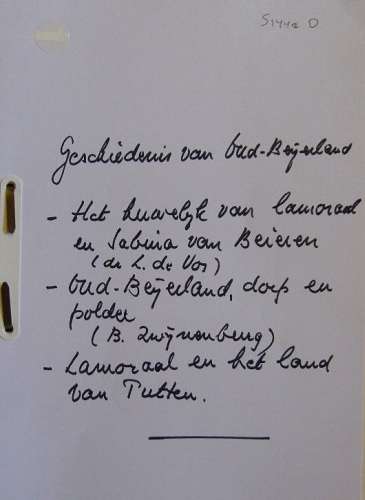 S1442 D
Geschiedenis van Oud-Beijerland
- Het huwelijk van Lamoraal
en Sabina van Beieren
(dr L. de Vos)
- Oud-Beijerland, dorp en
polder
(B. Zwijnenburg)
- Lamoraal en het land
van Putten.